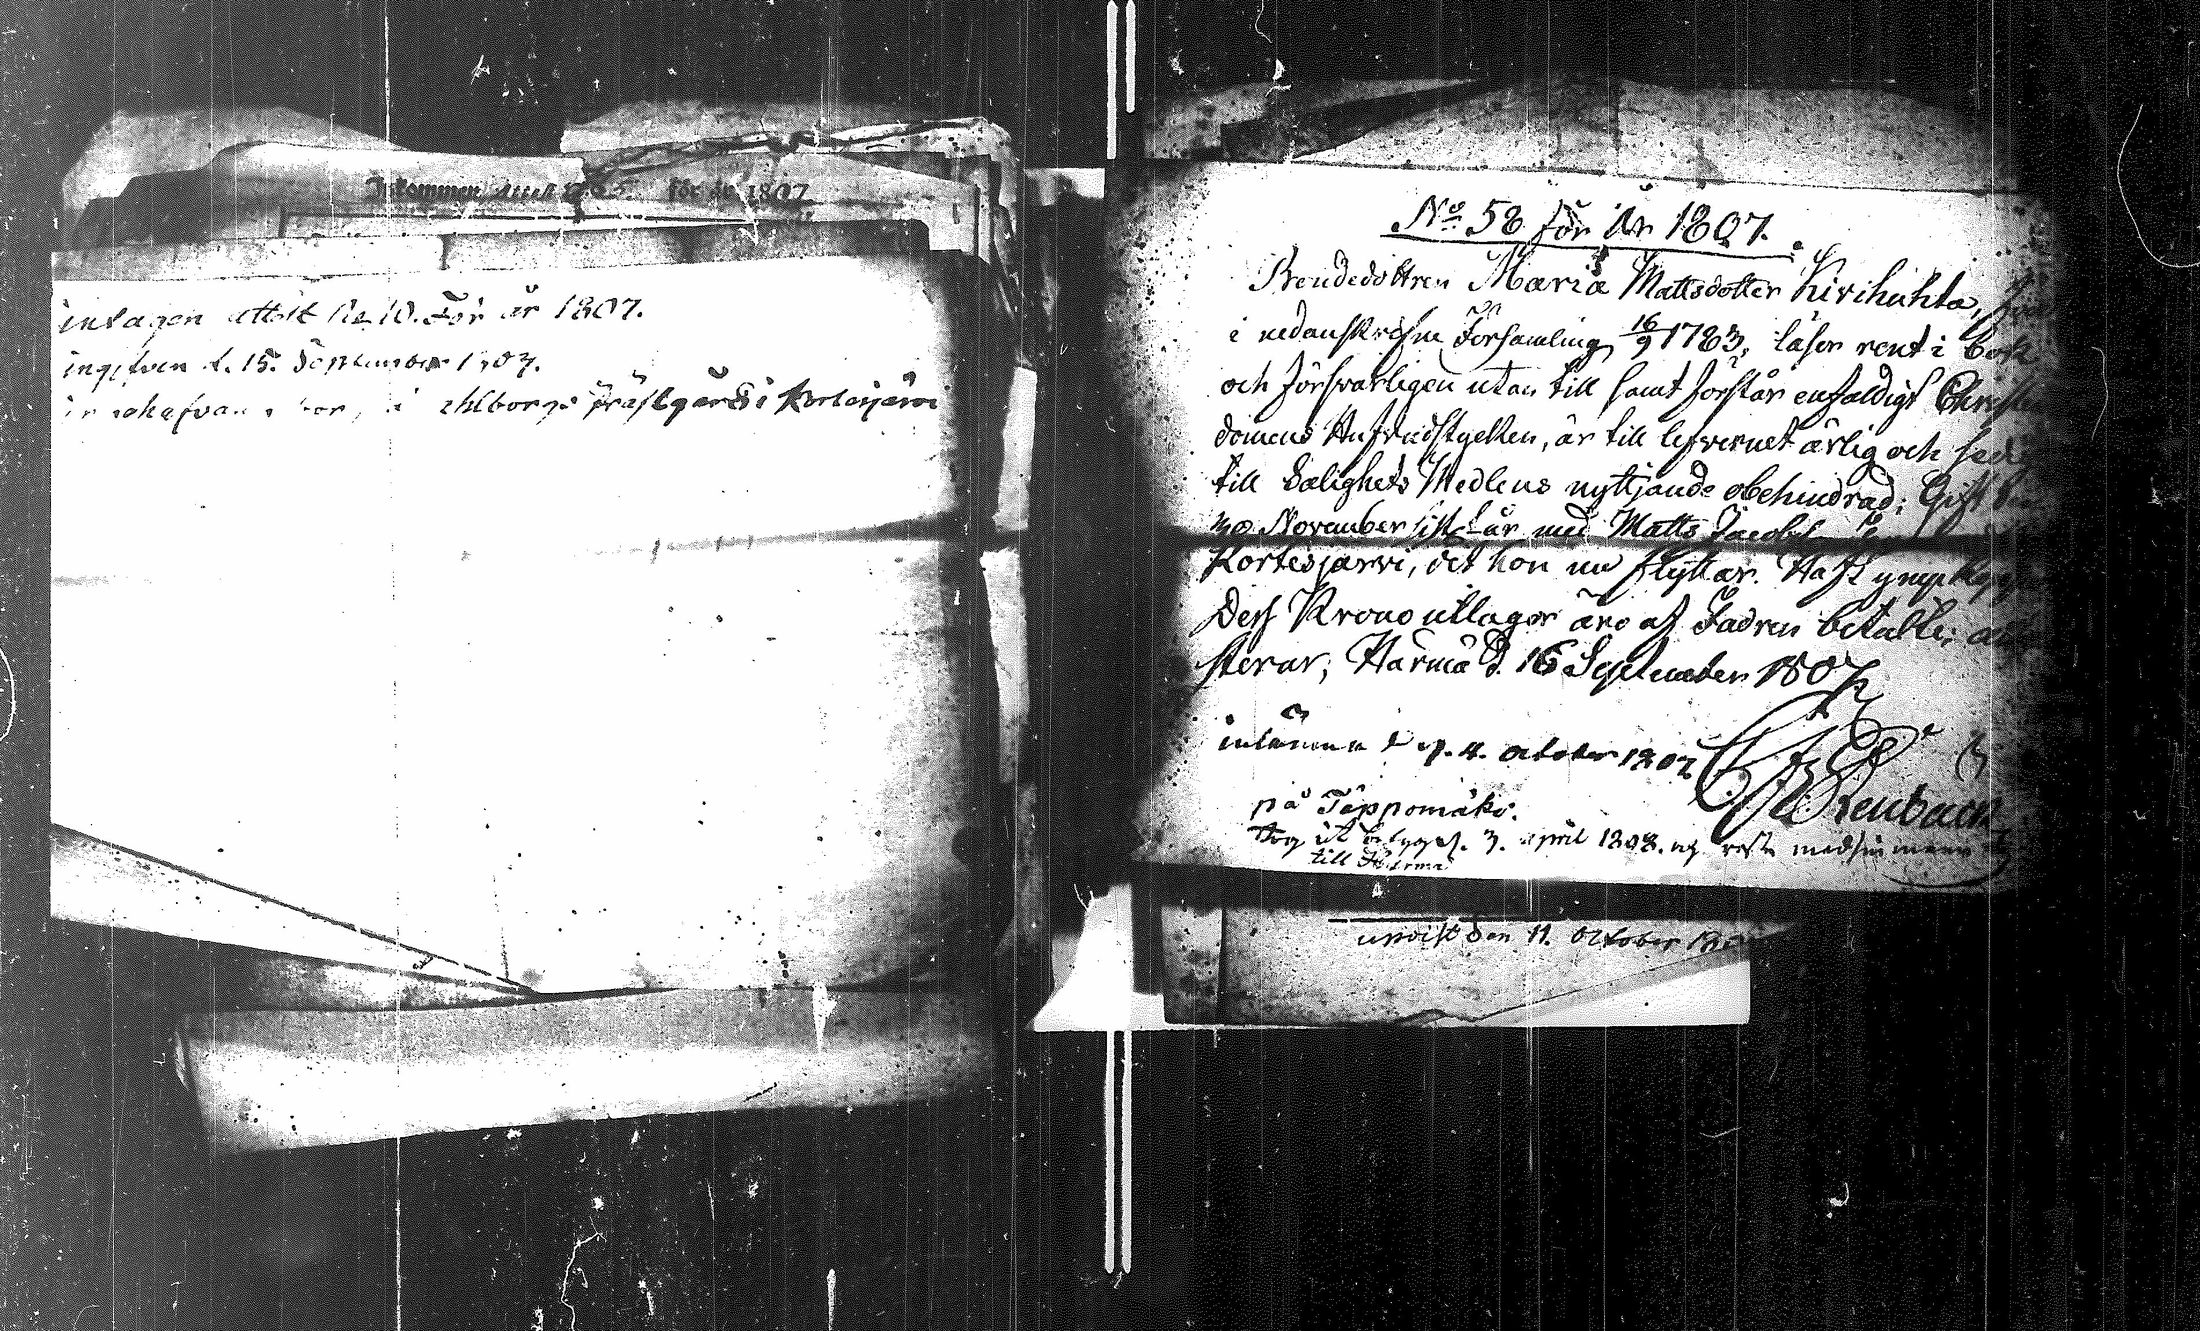 Inkommen för år 1807
intagen attest No 10. För år 1807.
ingifven d. 15. September 1807.
prästgård i Kortesjärvi
No 58 för År 1807.
Bondedottren Maria Mattsdotter Kivihuhta,
i nedanskrefne Församling 16/9 1783, läser rent i bok
och försvarligen utan till samt förstår enfaldigt Christen
domens Hufvudstycken, är till lefvernet ärlig och
till Salighets Medlens nyttjande obehindrad; Gift
November sistl. år med Matts Jacobs
Kortesjärvi, dit hon nu flyttar. Haft
Dess Krono utlagor äro af Fadren betalte;
sterar; Härmä d. 16 September 1807
inlämna d. 4. October 1807
på Täppomäki.
tog ut betyget. 3. april 1808. og reste med sin mann
till Härmä
upvist den 11. October